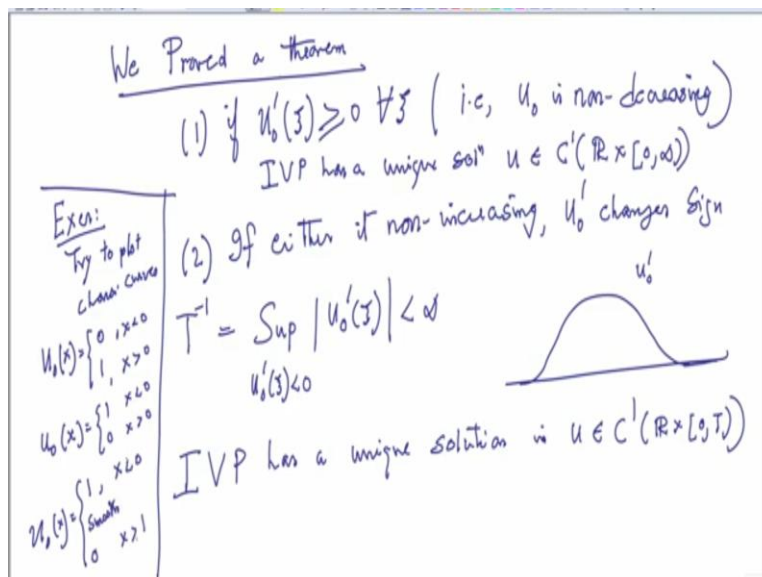 We Proved a theorem
(1) if u₀'(ξ) ⩾ 0 ∀ξ ( i.e, u₀ is non-decreasing)
IVP has a unique solⁿ u ∈ C'(ℝ × [0,∞))
(2) If either it non-increasing, u₀' changes sign
T⁻¹ = Sup |u₀'(ξ)| < ∞
u₀'(ξ)<0
u₀'
IVP has a unique solution in u ∈ C'(ℝ × [0,T))
Exer:
Try to plot
chara: curves
u₀(x) = { 0 , x<0
1, x>0
u₀(x) = { 1 x<0
0 x>0
u₀(x) = { 1, x<0
smooth
0 x>1